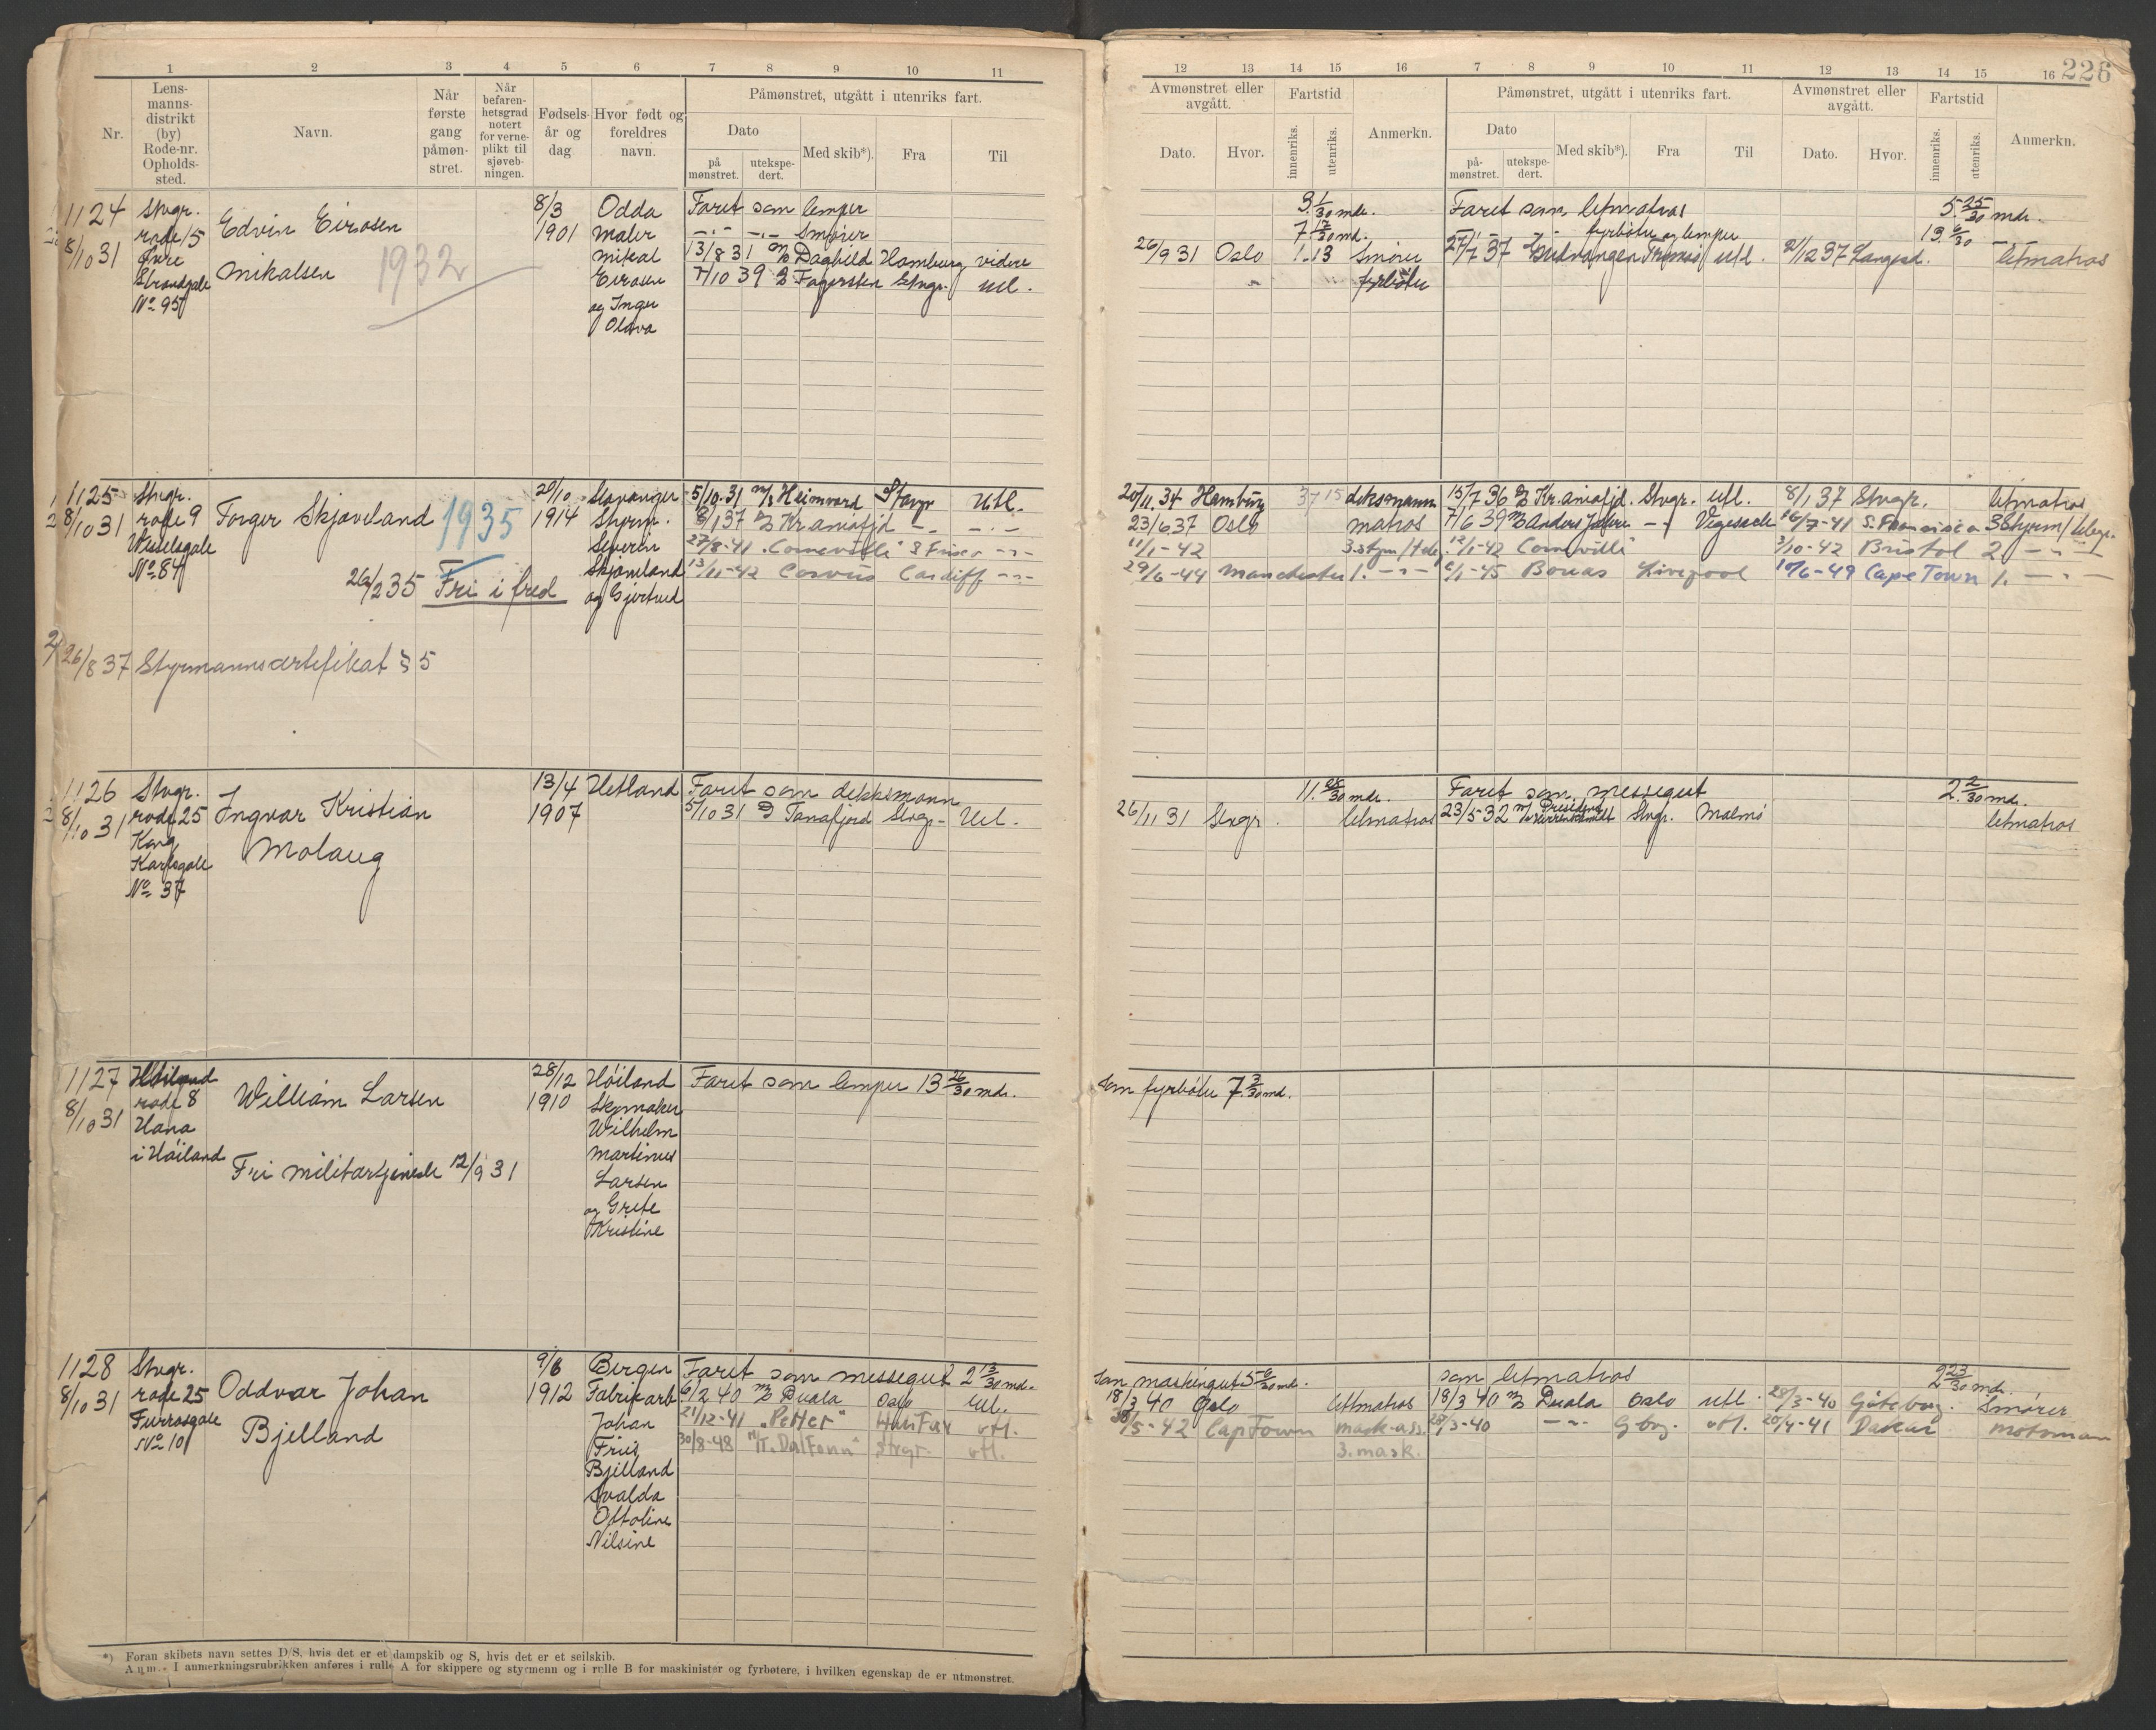 1 2 3 4 5 6 7 8 9 10 11
Nr.
Lens-
manns-
distrikt
(by)
Rode-nr.
Opholds-
sted.
Navn.
Når
første
gang
påmøn-
stret.
Når
befaren-
hetsgrad
notert
for verne-
plikt til
sjøveb-
ningen.
Fødsels-
år og
dag
Hvor født og
foreldres
navn.
Påmønstret, utgått i utenriks fart.
Dato
på
mønstret.
utekspe-
dert.
Med skib*).
Fra
Til
12 13 14 15 16 7 8 9 10 11 12 13 14 15 16
226
Avmønstret eller
avgått.
Dato.
Hvor.
Fartstid
innenriks.
utenriks.
Anmerkn.
Påmønstret, utgått i utenriks fart.
Dato
på-
mønstret.
utekspe-
dert.
Med skib*).
Fra
Til
Avmønstret eller
avgått.
Dato.
Hvor.
Fartstid
innenriks.
utenriks.
Anmerkn.
1124
8/10 31
Stvgr.
rode 15
Øvre
Strandgate
No 95
Edvin Eirasen
Mikalsen
1932
8/3
1901
Odda
Maler
Mikal
Eirasen
og Inger
Olava
Faret som lemper 3 1/30 mdr. Faret som letmatros 5 25/30 mdr.
—"— —"— Smører 7 12/30 md. fyrbøter og lemper 13
13/8 31 Daghild Hamburg videre 26/9 31 Oslo 1.13 Smører 27/7 37 Gudvangen Tromsø utl. 21/12 37 letmatros
7/10 39 Fagersten Stvgr. utl. fyrbøter
1125
8/10 31
Stvgr.
rode 9
Wesselsgate
No. 84
Torger Skjæveland
1935
26/2 35 Fri i fred
26/8 37 Styrmannscertifikat § 5
20/10
1914
Stavanger
Styrm.
Severin
Skjæveland
og Gjertrud
5/10 31 m/s Heimvard Stavgr Utl. 20/11 34 Hamburg 37 15 deksmann 15/7 36 Kr.aniafjd. Stvgr. utl. 8/1 37 Stvgr. letmatros
8/1 37 Kr.aniafjd —"— 23/6 37 Oslo matros 7/6 39 Anders Jahre —"— Vegesack 16/7-41 S. Francisco 3 Styrm/telegr.
27/8-41 "Corneville" S Frisco —"— 11/1-42 3. styrm/tele. 12/1-42 Cornville" 3/10-42 Bristol 2 —"—
13/11-42 Corvus Cardiff —"— 29/6-44 Manchester 1. —"— 6/1-45 Bonas Liverpool 10/6-49 Cape Town 1. —"—
1126
8/10 31
Stvgr.
rode 25
Kong
Karlsgate
No 37
Ingvar Kristian
Molaug
13/4
1907
Hetland
Faret som dekksmann 11. 25/30 mdr. Faret som messegut 2. 2/30 md.
5/10 31 D Tanafjord Stvgr. Utl. 26/11 31 Stvgr. letmatros 23/5-32 Stvgr. Malmø letmatros
1127
8/10 31
Høiland
rode 8
Hana
i Høiland
William Larsen
Fri militærtjeneste 12/9 31
28/12
1910
Høiland
Skomaker
Wilhelm
Martinus
Larsen
og Grete
Kristine
Faret som lemper 13 26/30 mdr. Som fyrbøter 7. 3/30 md.
1128
8/10 31
Stvgr.
rode 25
Furrasgate
No 10
Oddvar Johan
Bjelland
9/6
1912
Bergen
Fabrikarb
Johan
Friis
Bjelland
Svalda
Ottoline
Nilsine
Faret som messegut 2 13/30 md. Som maskingut 5 6/30 md. som letmatros 2 23/30 md.
6/2 40 Duala Oslo Utl. 18/3 40 Oslo letmatros 18/3 40 Duala Oslo utl. 28/3-40 Göteborg. Smører
21/12-41 "Petter" Halifax utl. 30/5-42 CapTown mask-ass. 28/3-40 —"— Gborg. utl. 20/4-41 Dakar motorman
30/8-48 "Dalfonn" Stvgr. utl. 3. mask.
*) Foran skibets navn settes D/S, hvis det er et dampskib og S, hvis det er et seilskib.
Anm. - I anmerkningsrubrikken anføres i rulle A for skippere og styrmenn og i rulle B for maskinister og fyrbøtere, i hvilken egenskap de er utmønstret.